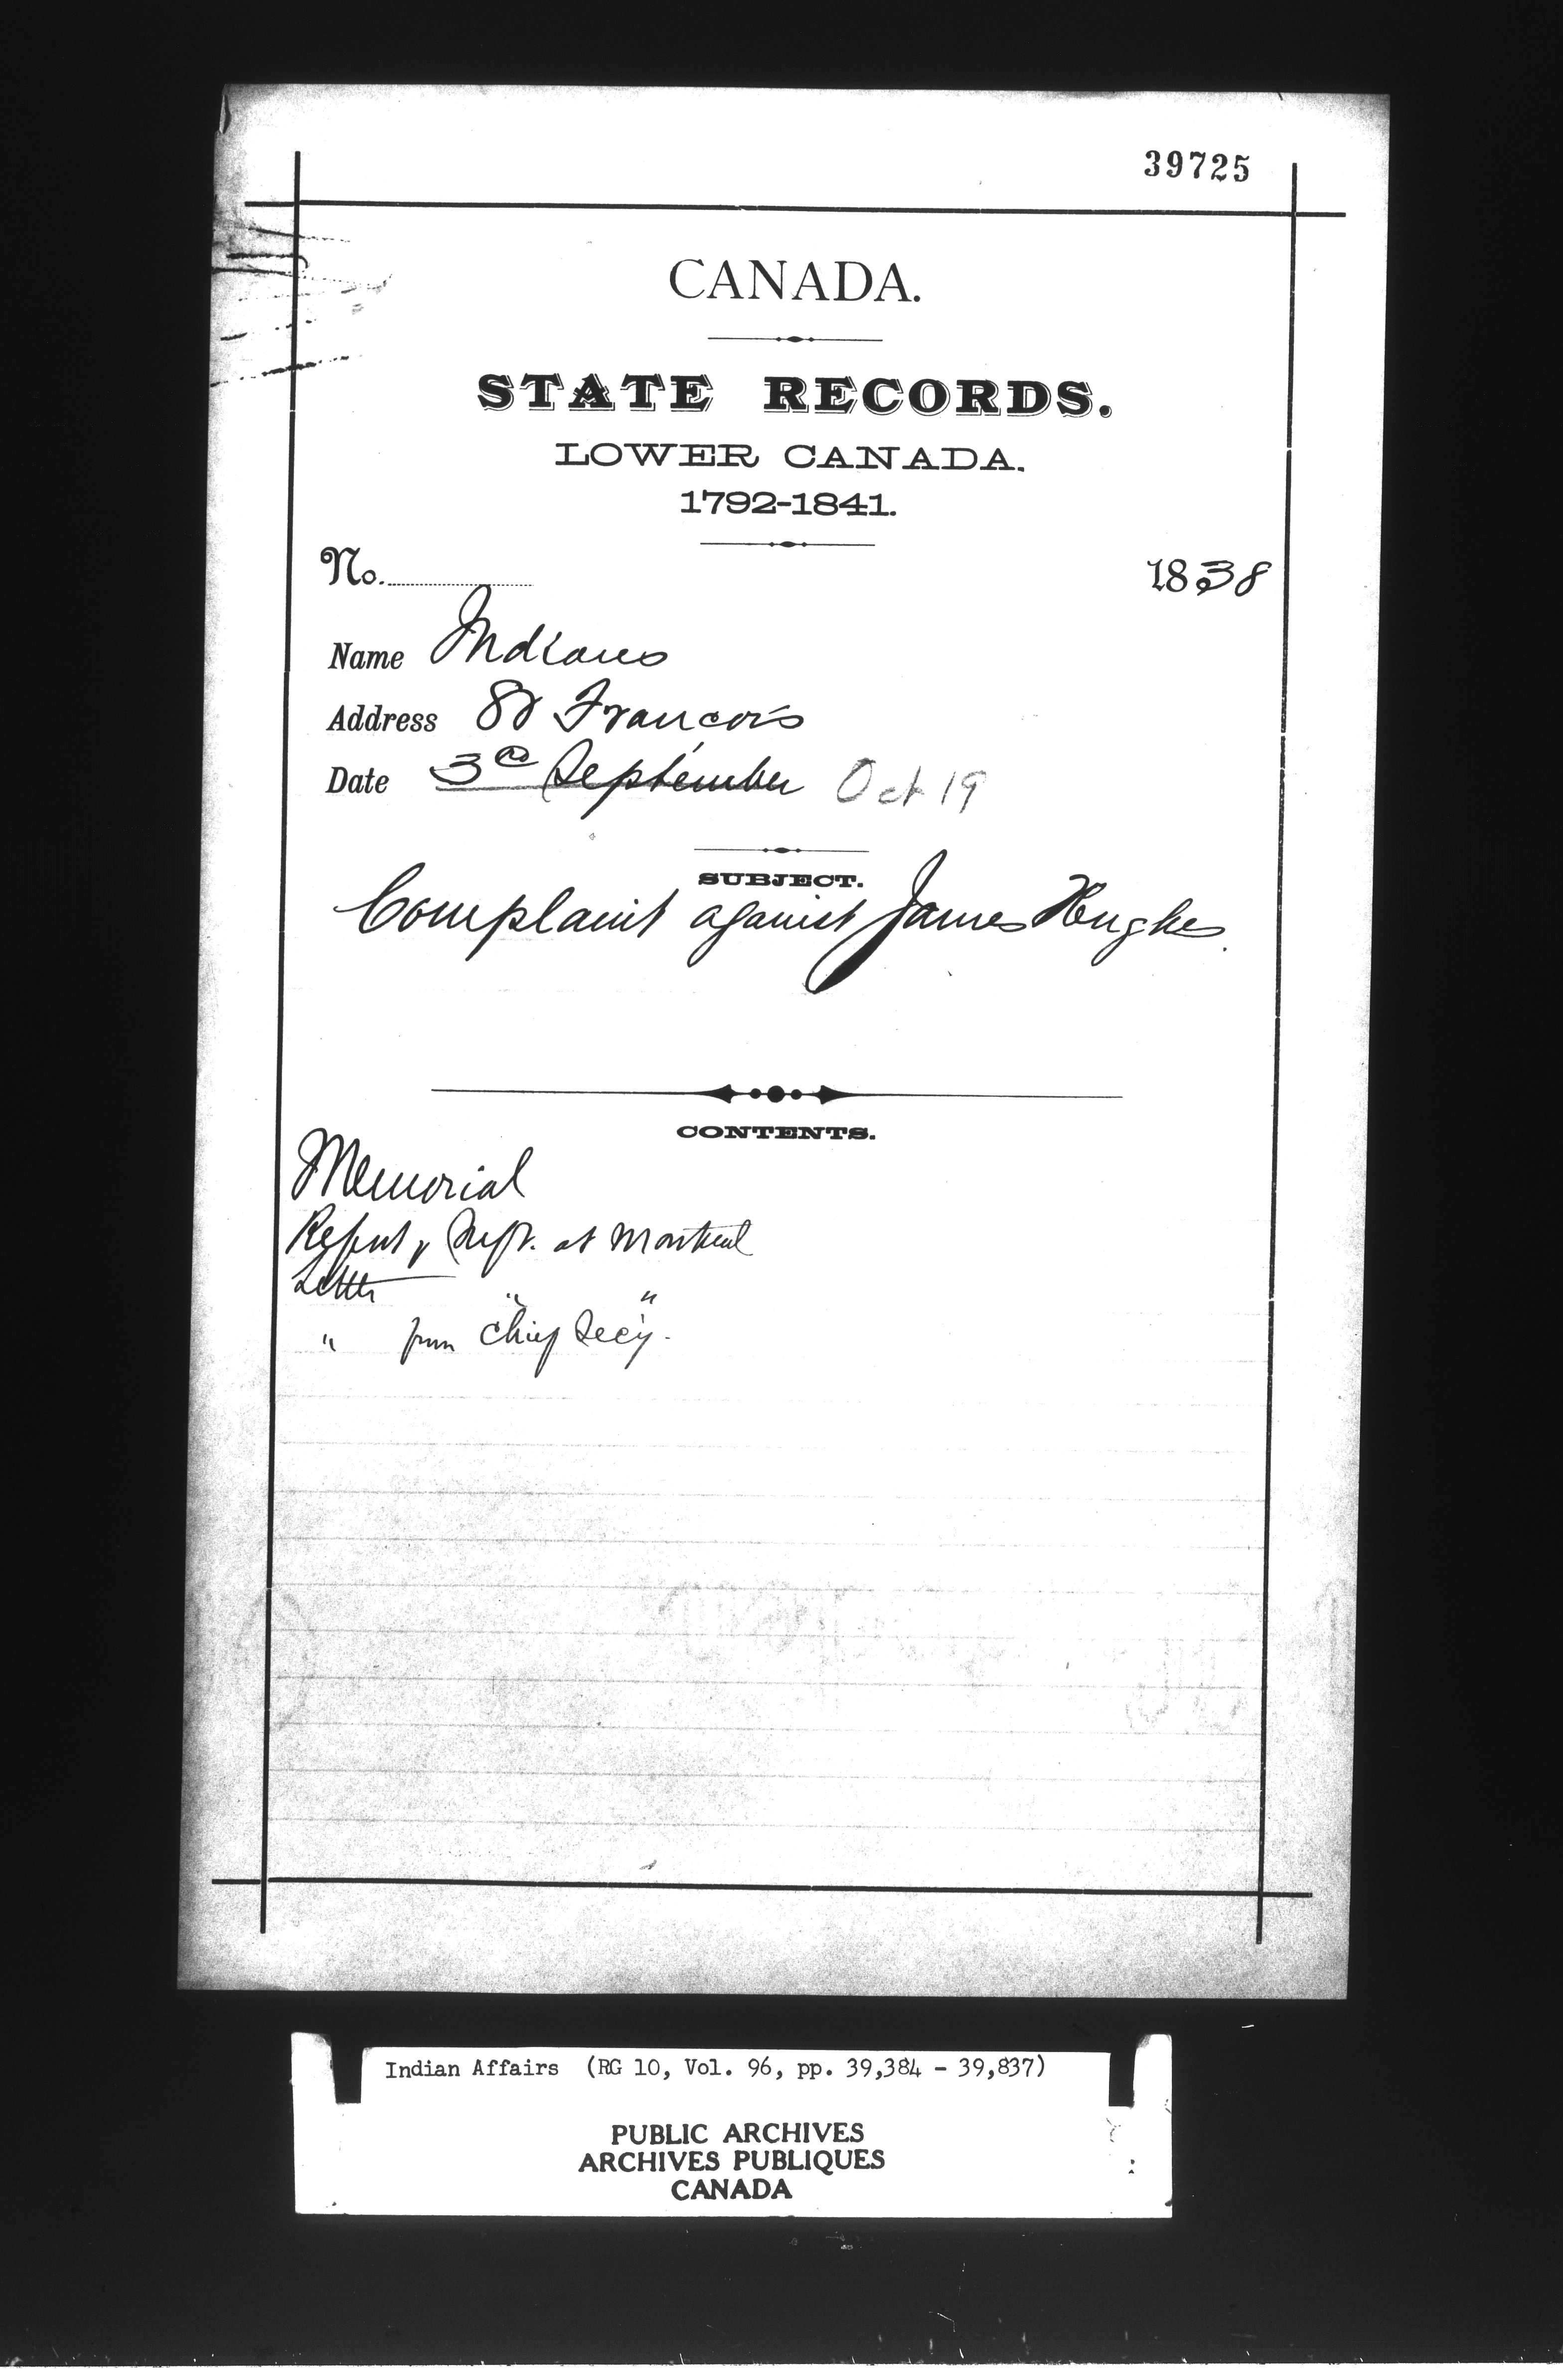 39725
CANADA.
STATE RECORDS.
LOWER CANADA.
1792-1841.
No. 1838
Name Indians
Address St Francois
Date 3rd September Oct 19
SUBJECT.
Complaint against James Hughes.
CONTENTS.
Memorial
Report Supt. at Montreal
Letter " "
" from Chief Secy.
Indian Affairs (RG 10, Vol. 96, pp. 39,384 - 39,837)
PUBLIC ARCHIVES
ARCHIVES PUBLIQUES
CANADA